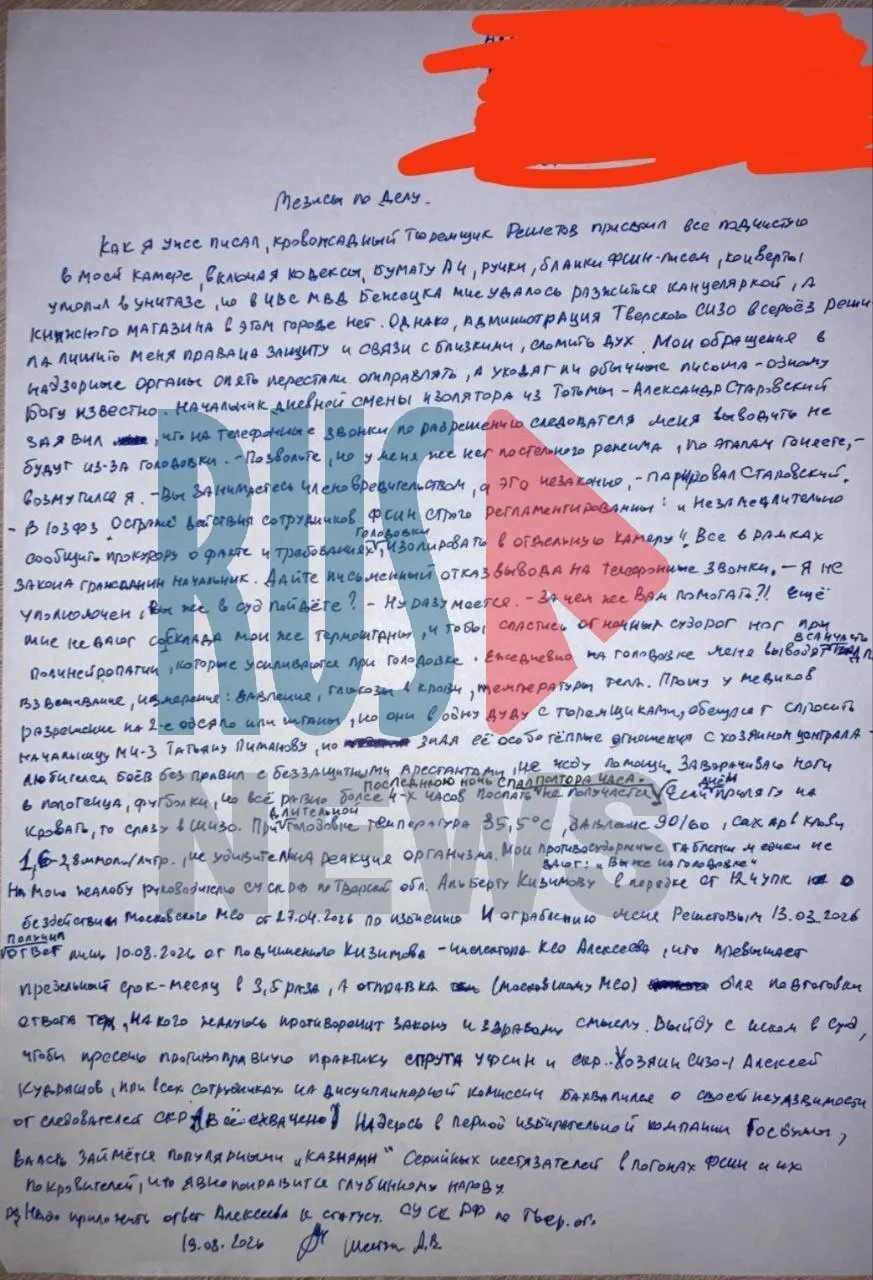 Тезисы по делу.
Как я уже писал, кровожадный тюремщик Решетов присвоил все подчистую
в моей камере, включая кодексы, бумагу А4, ручки, бланки ФСИН-писем, конверты
утопил в унитазе, но в ИВС МВД Бежецка мне удалось разжиться канцеляркой, а
книжного магазина в этом городе нет. Однако, администрация Тверского СИЗО всерьёз реши-
ла лишить меня права на защиту и связи с близкими, сломить дух. Мои обращения в
надзорные органы опять перестали отправлять, а уходят ли обычные письма – одному
Богу известно. Начальник дневной смены изолятора из Тотьмы – Александр Старовский
заявил, что на телефонные звонки по разрешению следователя меня выводить не
будут из-за голодовки. – Позвольте, но у меня же нет постельного режима, по этапам гоняете, –
возмутился я. – Вы занимаетесь членовредительством, а это незаконно, – парировал Старовский.
– В 103 ФЗ действия сотрудников ФСИН строго регламентированны: "Незамедлительно
сообщить прокурору о факте и требованиях голодовки изолировать в отдельную камеру". Все в рамках
закона гражданин начальник. Дайте письменный отказ вывода на телефонные звонки. – Я не
уполномочен, вы же в суд пойдёте? – Ну разумеется. – Зачем же Вам помогать?! Ещё
мне не дают со склада мои же термоштаны, чтобы спастись от ночных судорог ног при
полинейропатии, которые усиливаются при голодовке. Ежедневно на голодовке меня выводят в санчасть
взвешивание, измерение: давление, глюкозы в крови, температуры тела. Прошу у медиков
разрешение на 2-е одеяло или штаны, но они в одну дуду с тюремщиками, обещают спросить
начальницу МЧ-3 Татьяну Пиманову, но зная её особо тёплые отношения с хозяином централа –
любителем боёв без правил с беззащитными арестантами, не жду помощи. Заворачиваю ноги
в полотенца, футболки, но всё равно более 4-х часов поспать не получается, последнюю ночь спал полтора часа. Если днём прилягу на
кровать, то сразу в ШИЗО. При длительной голодовке температура 35,5°С, давление 90/60, сахар в крови
1,6-2,8 ммоль/литр, не удивительна реакция организма. Мои противосудорожные таблетки медики не
дают: "Вы же на голодовке"
На мою жалобу руководителю СУ СК РФ по Тверской обл. Альберту Кизимову в порядке ст 124 УПК о
бездействии Московского МСО от 27.04.2026 по избиению и ограблению меня Решетовым 13.03.2026
получил ответ лишь 10.08.2026 от подчиненного Кизимова – инспектора КСО Алексеева, что превышает
предельный срок – месяц в 3,5 раза, а отправка (Московскому МСО) для подготовки
ответа тем, на кого жалуюсь противоречит закону и здравому смыслу. Выйду с иском в суд,
чтобы пресечь противоправную практику спрута УФСИН и СКР. Хозяин СИЗО-1 Алексей
Кудрашов, при всех сотрудниках на дисциплинарной комиссии бахвалился о своей неуязвимости
от следователей СКР (Всё схвачено) Надеюсь в период избирательной компании Госдумы,
власть займётся популярными "казнями" серийных истязателей в погонах ФСИН и их
покровителей, что явно понравится глубинному народу.
Надо приложить ответ Алексеева к статусу. СУ СК РФ по Твер. об.
19.08.2026